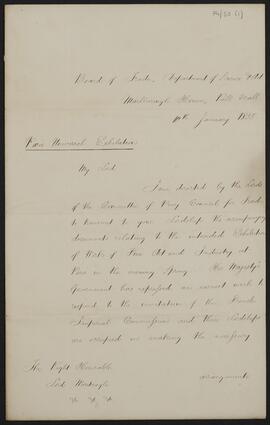 Board of Trade, Department of Science & Art
Marlborough House, Pall Mall
10th January 1855
Paris Universal Exhibition
My Lord
I am directed by the Lords
of the Committee of Privy Council for Trade
to transmit to your Lordship the accompanying
documents relating to the intended Exhibition
of Works of Fine Art and Industry at
Paris in the ensuing Spring. Her Majesty's
Government has expressed an earnest wish to
respond to the invitation of the French
Imperial Commission and their Lordships
are occupied in making the necessary
arrangements
The Right Honorable
Lord Monteagle